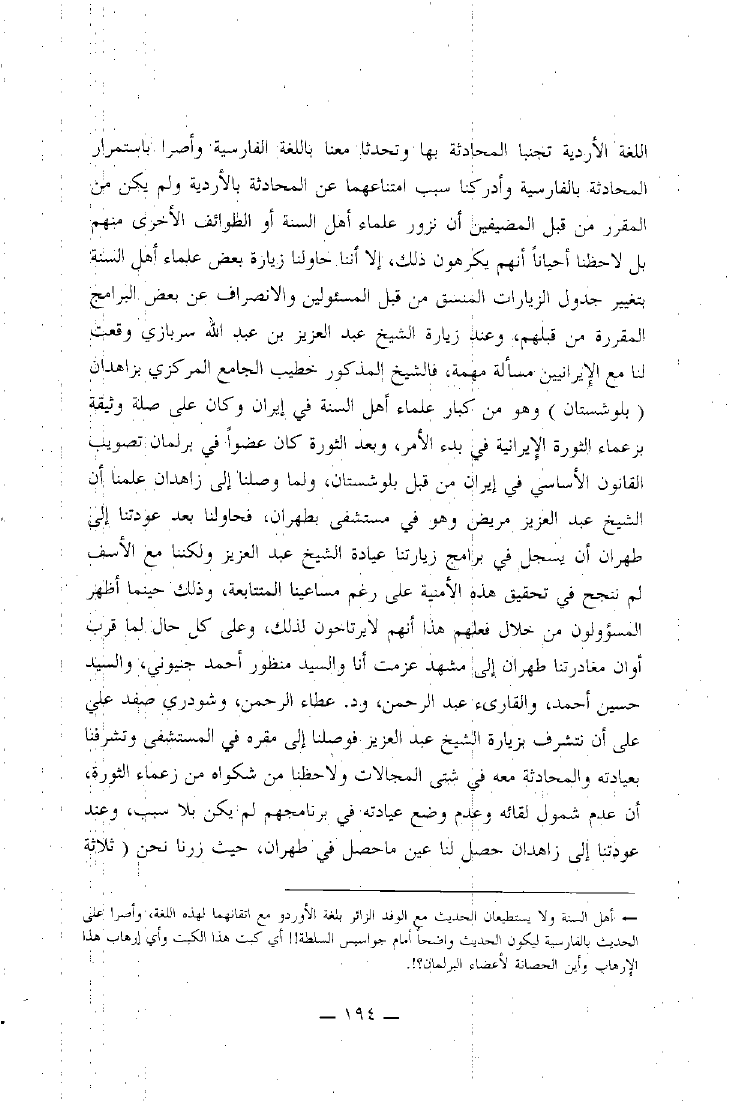 اللغة الأردية تجنبا المحادثة بها وتحدثا معنا باللغة الفارسية وأصرا باستمرار
المحادثة بالفارسية وأدركنا سبب امتناعهما عن المحادثة بالأردية ولم يكن من
المقرر من قبل المضيفين أن نزور علماء أهل السنة أو الطوائف الأخرى منهم
بل لاحظنا أحياناً أنهم يكرهون ذلك، إلا أننا حاولنا زيارة بعض علماء أهل السنة
بتغيير جدول الزيارات المنسق من قبل المسئولين والانصراف عن بعض البرامج
المقررة من قبلهم، وعند زيارة الشيخ عبد العزيز بن عبد الله سربازي وقعت
لنا مع الإيرانيين مسألة مهمة، فالشيخ المذكور خطيب الجامع المركزي بزاهدان
( بلوشستان ) وهو من كبار علماء أهل السنة في إيران وكان على صلة وثيقة
بزعماء الثورة الإيرانية في بدء الأمر، وبعد الثورة كان عضواً في برلمان تصويب
القانون الأساسي في إيران من قبل بلوشستان، ولما وصلنا إلى زاهدان علمنا أن
الشيخ عبد العزيز مريض وهو في مستشفى بطهران، فحاولنا بعد عودتنا إلى
طهران أن يسجل في برامج زيارتنا عيادة الشيخ عبد العزيز ولكننا مع الأسف
لم ننجح في تحقيق هذه الأمنية على رغم مساعينا المتتابعة، وذلك حينما أظهر
المسؤولون من خلال فعلهم هذا أنهم لايرتاحون لذلك، وعلى كل حال لما قرب
أوان مغادرتنا طهران إلى مشهد عزمت أنا والسيد منظور أحمد جنيوني، والسيد
حسين أحمد، والقارىء عبد الرحمن، ود. عطاء الرحمن، وشودري صفد علي
على أن نتشرف بزيارة الشيخ عبد العزيز فوصلنا إلى مقره في المستشفى وتشرفنا
بعيادته والمحادثة معه في شتى المجالات ولاحظنا من شكواه من زعماء الثورة،
أن عدم شمول لقائه وعدم وضع عيادته في برنامجهم لم يكن بلا سبب، وعند
عودتنا إلى زاهدان حصل لنا عين ماحصل في طهران، حيث زرنا نحن ( ثلاثة
— أهل السنة ولا يستطيعان الحديث مع الوفد الزائر بلغة الأوردو مع اتقانهما لهذه اللغة، وأصرا على
الحديث بالفارسية ليكون الحديث واضحاً أمام جواسيس السلطة!! أي كبت هذا الكبت وأي إرهاب هذا
الإرهاب وأين الحصانة لأعضاء البرلمان؟!.
— ١٩٤ —